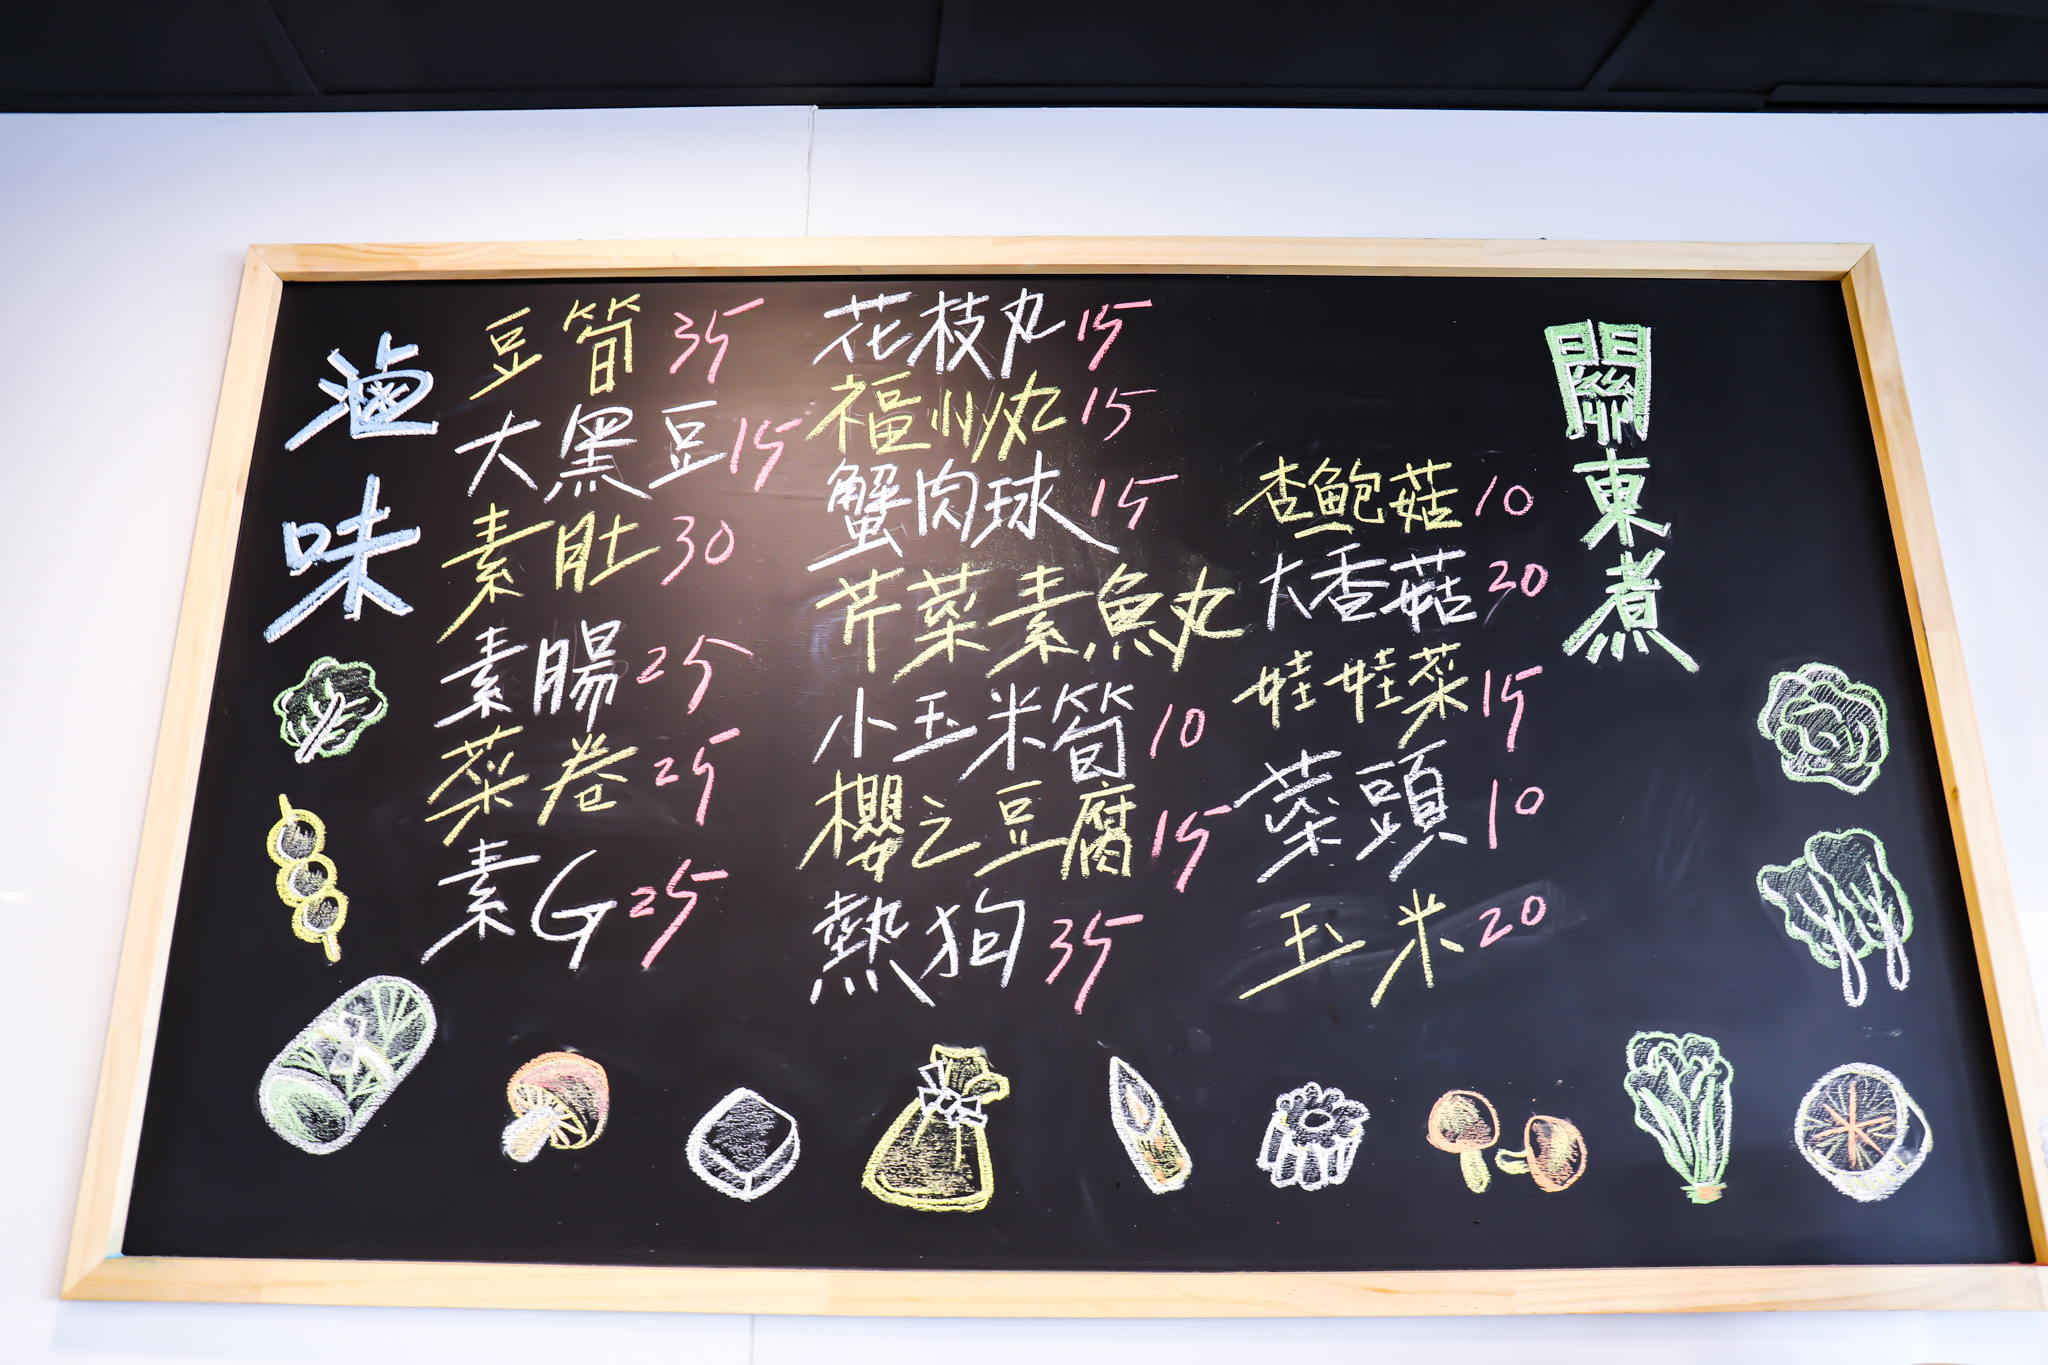 滷味
豆筍 35
大黑豆 15
素肚 30
素腸 25
菜卷 25
素G 25
花枝丸 15
福州丸 15
蟹肉球 15
芹菜素魚丸
小玉米筍 10
櫻之豆腐 15
熱狗 35
關東煮
杏鮑菇 10
大香菇 20
娃娃菜 15
菜頭 10
玉米 20